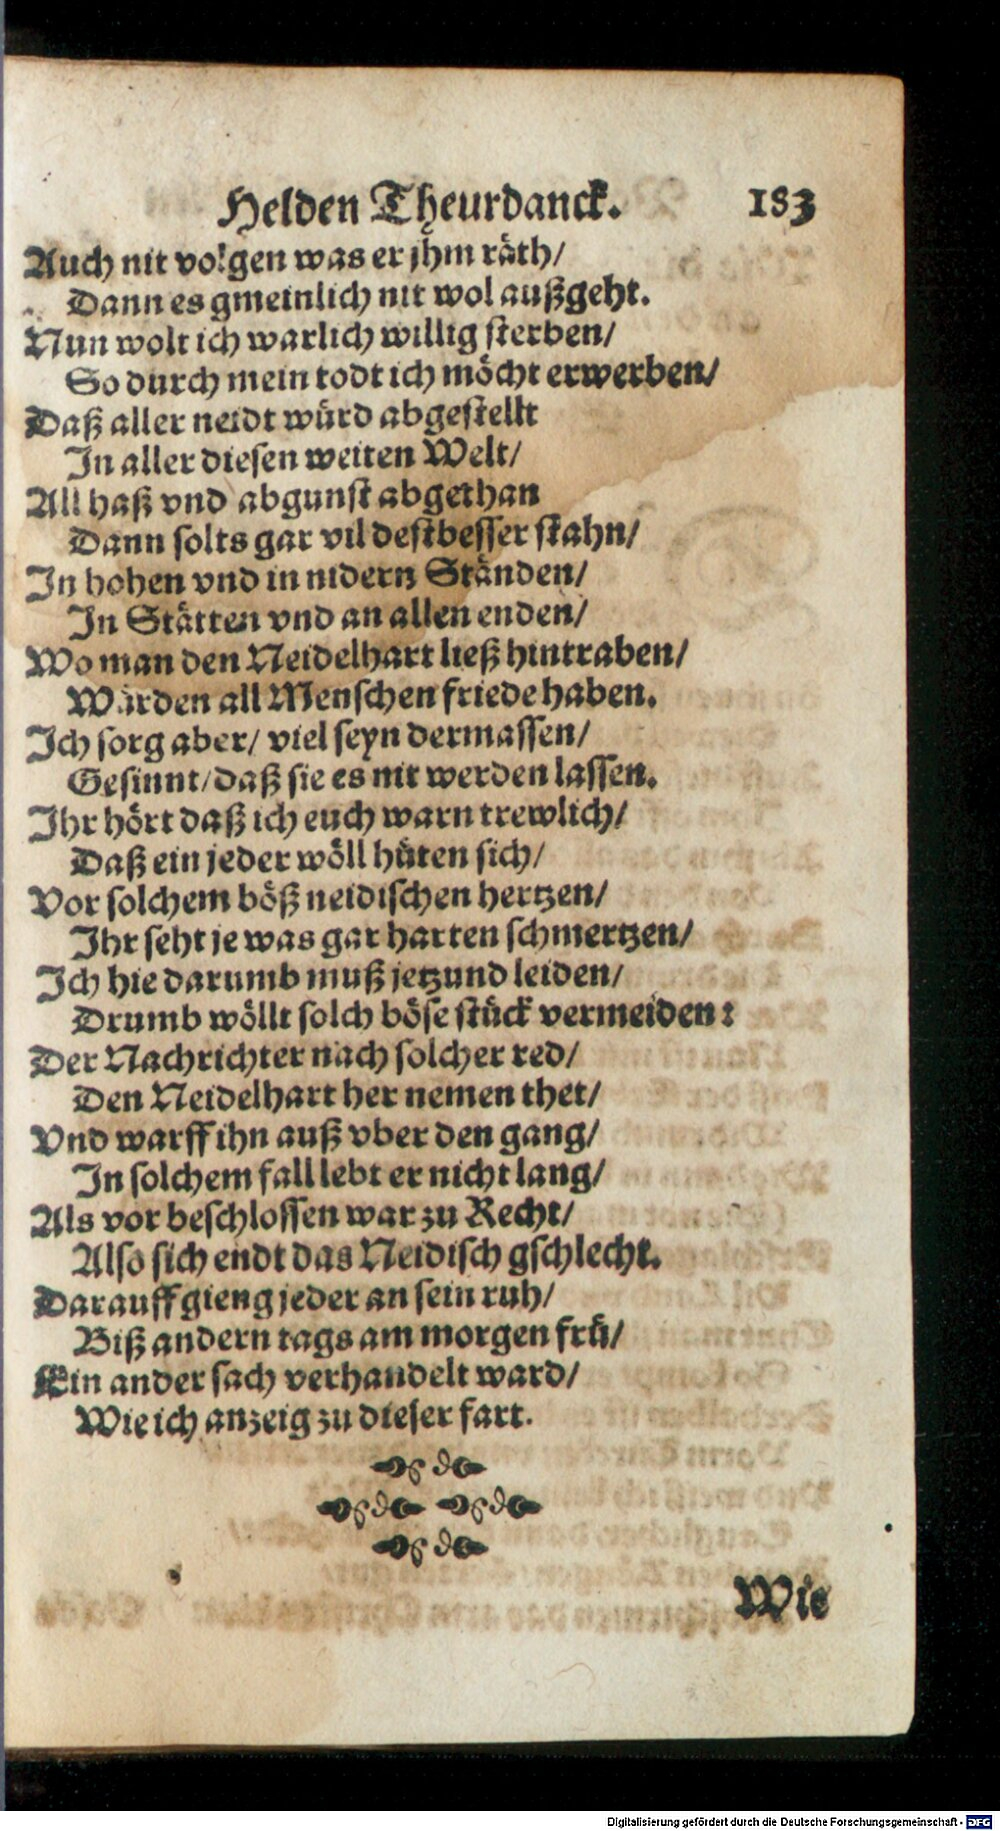 Helden Theurdanck. 183
Auch nit volgen was er jhm räth/
Dann es gmeinlich nit wol außgeht.
Nun wolt ich warlich willig sterben/
So durch mein todt ich möcht erwerben/
Daß aller neidt würd abgestellt
In aller diesen weiten Welt/
All haß vnd abgunst abgethan
Dann solts gar vil destbesser stahn/
In hohen vnd in nidern Ständen/
In Stätten vnd an allen enden/
Wo man den Neidelhart ließ hintraben/
Würden all Menschen friede haben.
Ich sorg aber/ viel seyn dermassen/
Gesinnt/ daß sie es nit werden lassen.
Ihr hört daß ich euch warn trewlich/
Daß ein jeder wöll hüten sich/
Vor solchem böß neidischen hertzen/
Ihr seht je was gar harten schmertzen/
Ich hie darumb muß jetzund leiden/
Drumb wöllt solch böse stück vermeiden:
Der Nachrichter nach solcher red/
Den Neidelhart her nemen thet/
Vnd warff ihn auß vber den gang/
In solchem fall lebt er nicht lang/
Als vor beschlossen war zu Recht/
Also sich endt das Neidisch gschlecht.
Darauff gieng jeder an sein ruh/
Biß andern tags am morgen frü/
Ein ander sach verhandelt ward/
Wie ich anzeig zu dieser fart.
Wie
Digitalisierung gefördert durch die Deutsche Forschungsgemeinschaft - DFG